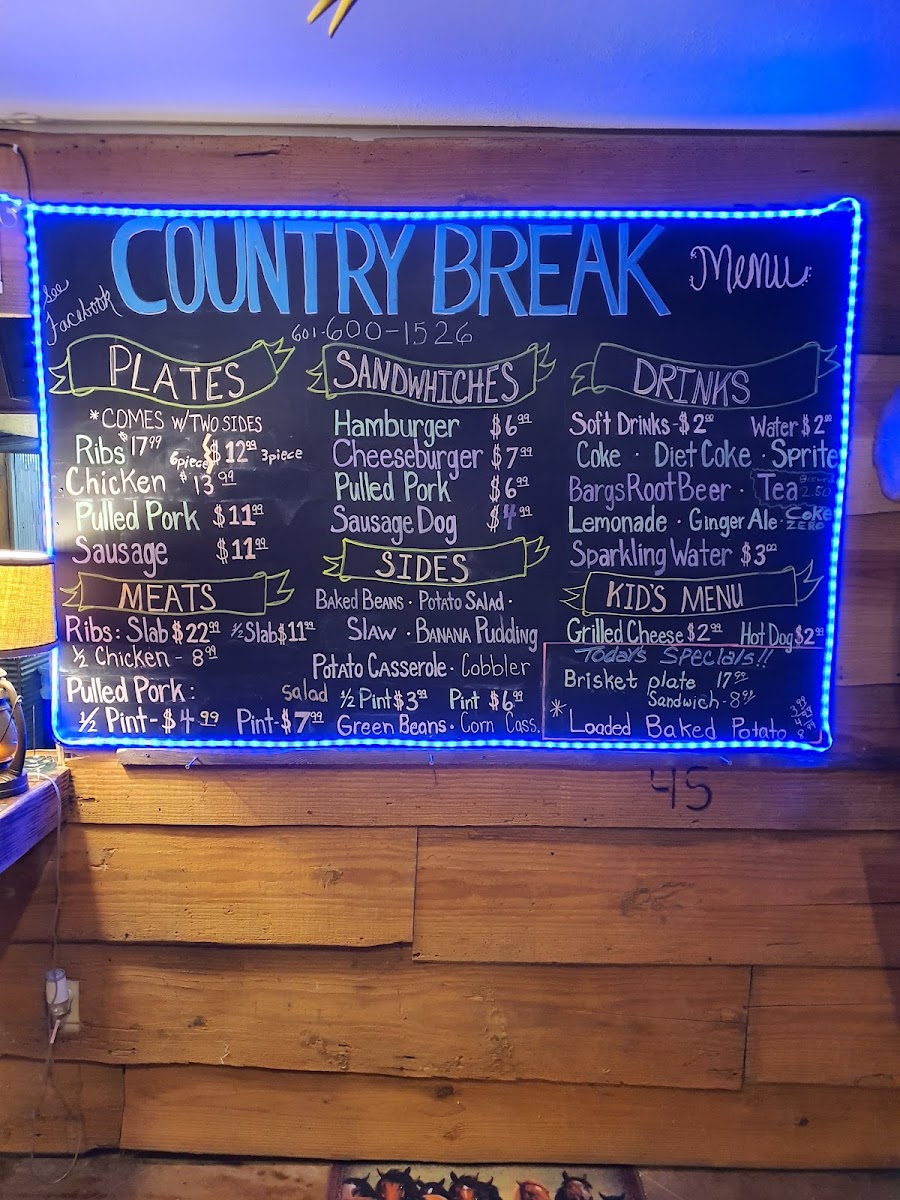 COUNTRY BREAK Menu
See Facebook
601-600-1526
PLATES
*COMES W/TWO SIDES
Ribs $17.99 6piece $12.99 3piece
Chicken $13.99
Pulled Pork $11.99
Sausage $11.99
MEATS
Ribs: Slab $22.99 ½ Slab $11.99
½ Chicken - 8.99
Pulled Pork:
½ Pint - $4.99 Pint - $7.99
SANDWHICHES
Hamburger $6.99
Cheeseburger $7.99
Pulled Pork $6.99
Sausage Dog $4.99
SIDES
BAKED BEANS · POTATO SALAD ·
SLAW · BANANA PUDDING
POTATO CASSEROLE · Cobbler
salad ½ Pint $3.99 Pint $6.99
GREEN BEANS · Corn Cass.
DRINKS
Soft Drinks - $2.00 Water $2.00
Coke · Diet Coke · Sprite
Bargs Root Beer · Tea 2.50
Lemonade · Ginger Ale · Coke ZERO
Sparkling Water $3.00
KID'S MENU
Grilled Cheese $2.99 Hot Dog $2.99
Today's Specials!!
Brisket plate 17.99
Sandwich - 8.99
* Loaded Baked Potato
45